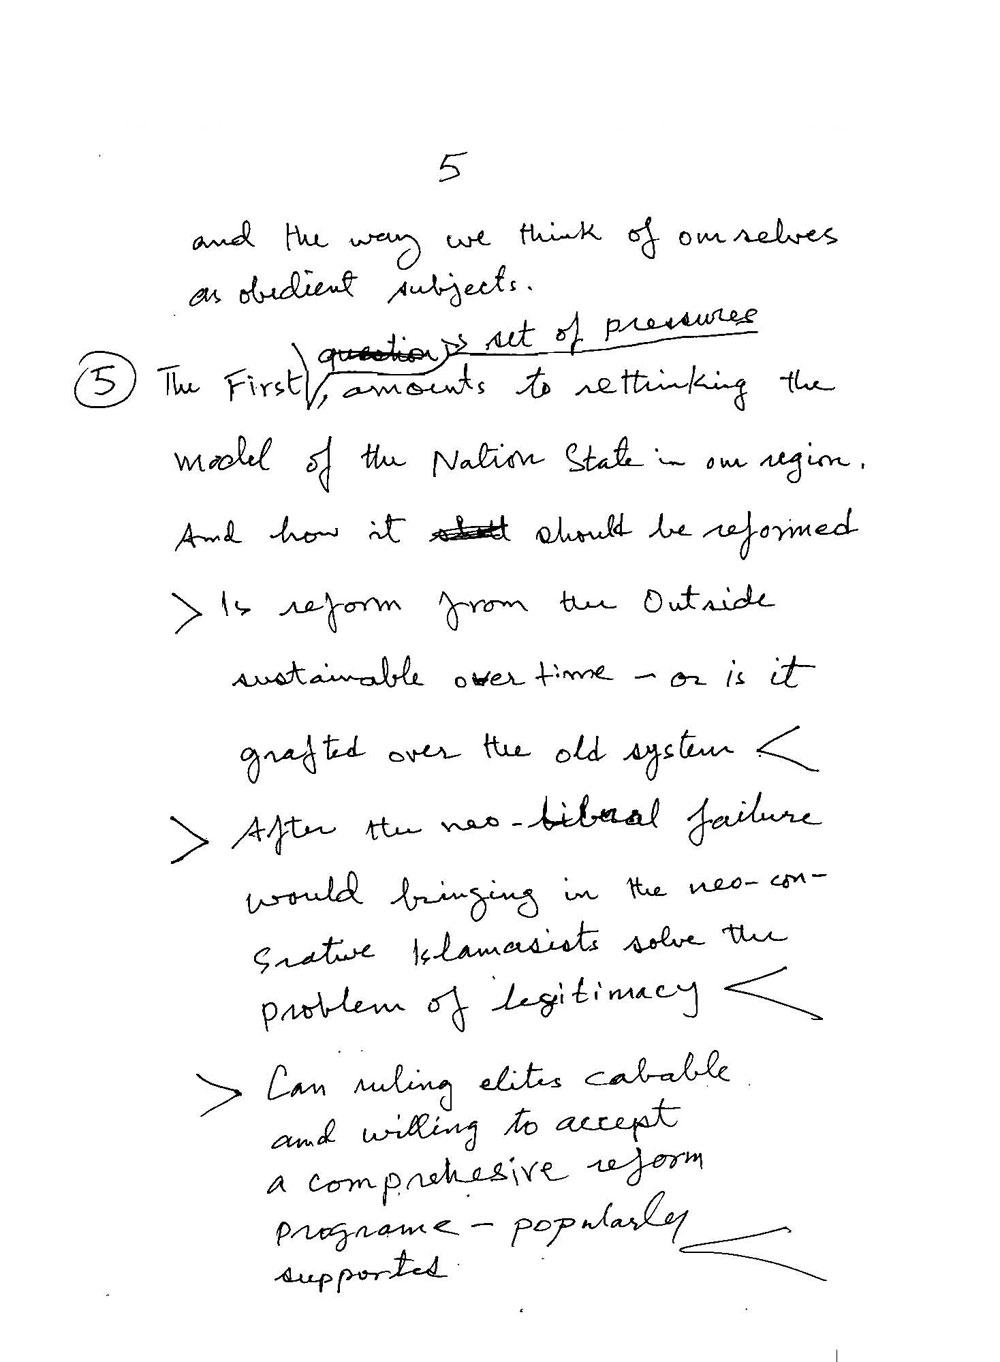 5
and the way we think of ourselves
as obedient subjects.
question set of pressures
5 The First, amounts to rethinking the
model of the Nation State in our region.
And how it shall should be reformed
> Is reform from the Outside
sustainable over time – or is it
grafted over the old system <
> After the neo-liberal failure
would bringing in the neo-con-
srative Islamasists solve the
problem of legitimacy <
> Can ruling elites cabable
and willing to accept
a comprehesive reform
programe – popularly <
supported.